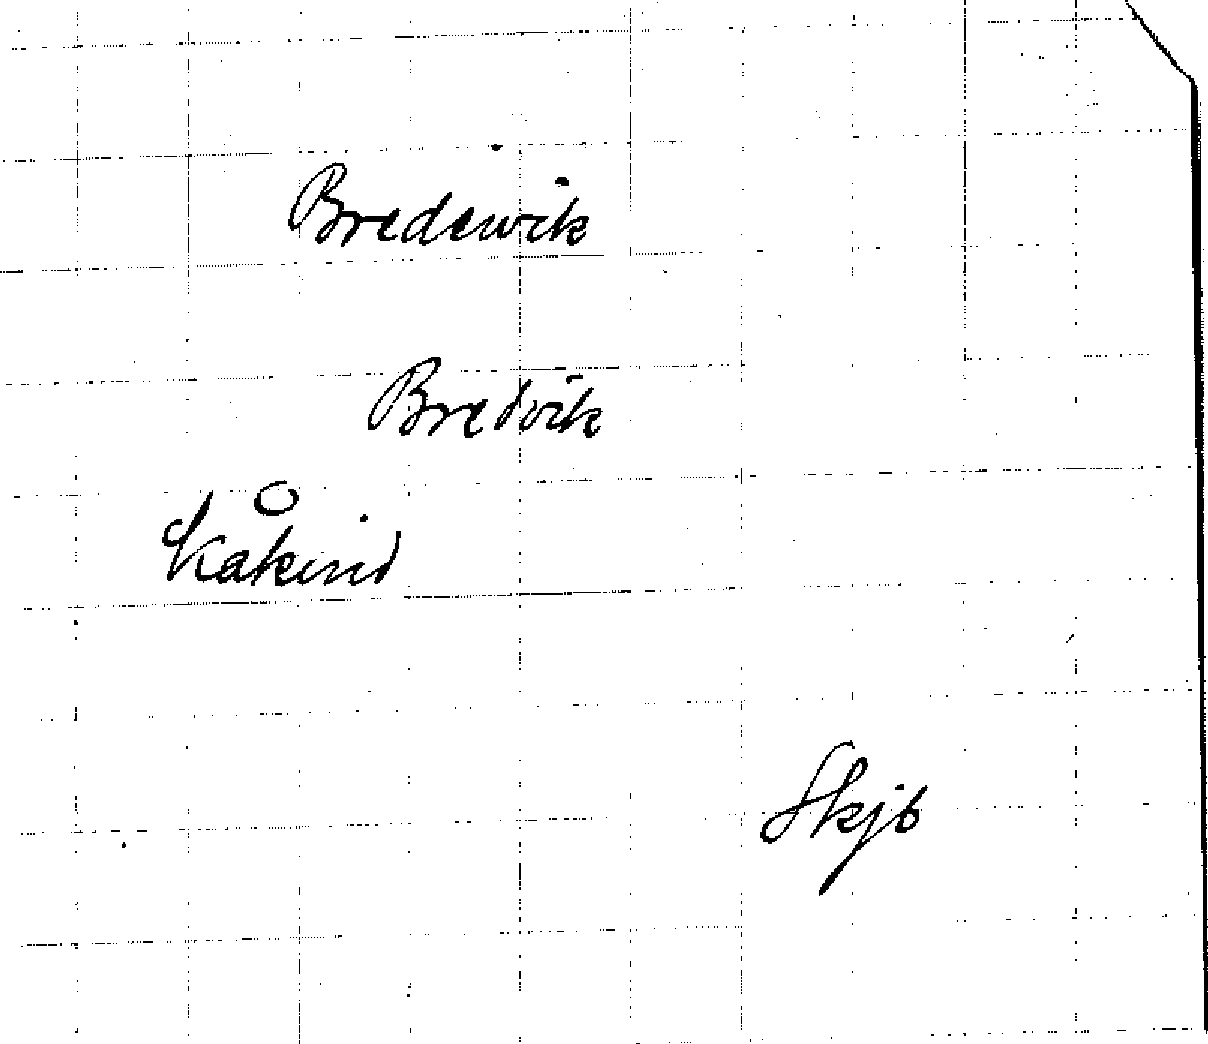 Bredewik
Bredvik
Kåkind
Skjb